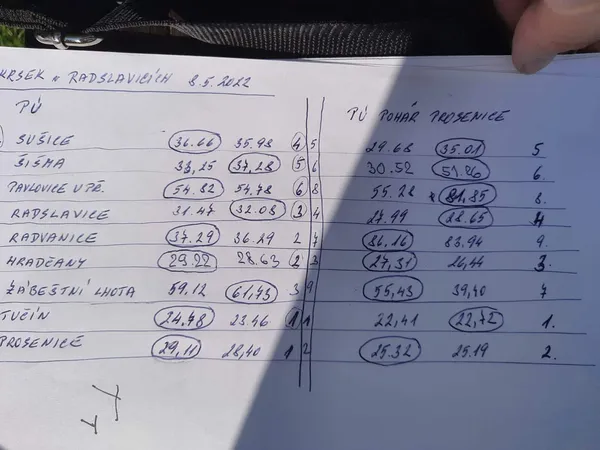 OKRSEK v RADSLAVICÍCH 8.5.2022
PÚ PÚ POHÁR PROSENICE
SUŠICE 36.66 35.98 4 5 29.68 35.01 5
ŠIŠMA 33,25 37,28 5 6 30.52 51.26 6.
PAVLOVICE U PŘ. 54.82 54.78 6 8 55.28 81,85 8.
RADSLAVICE 31.47 32.08 3 4 27.99 28.65 4
RADVANICE 37.29 36.29 2 7 86.16 83.94 9.
HRADČANY 29.22 28.63 2 3 27,31 26,44 3.
ZÁBEŠTNÍ LHOTA 59,12 61,73 3 9 55,43 39,40 7
TUČÍN 24.78 23.46 1 1 22,41 22,72 1.
PROSENICE 29,11 28,40 1 2 25.32 25.19 2.